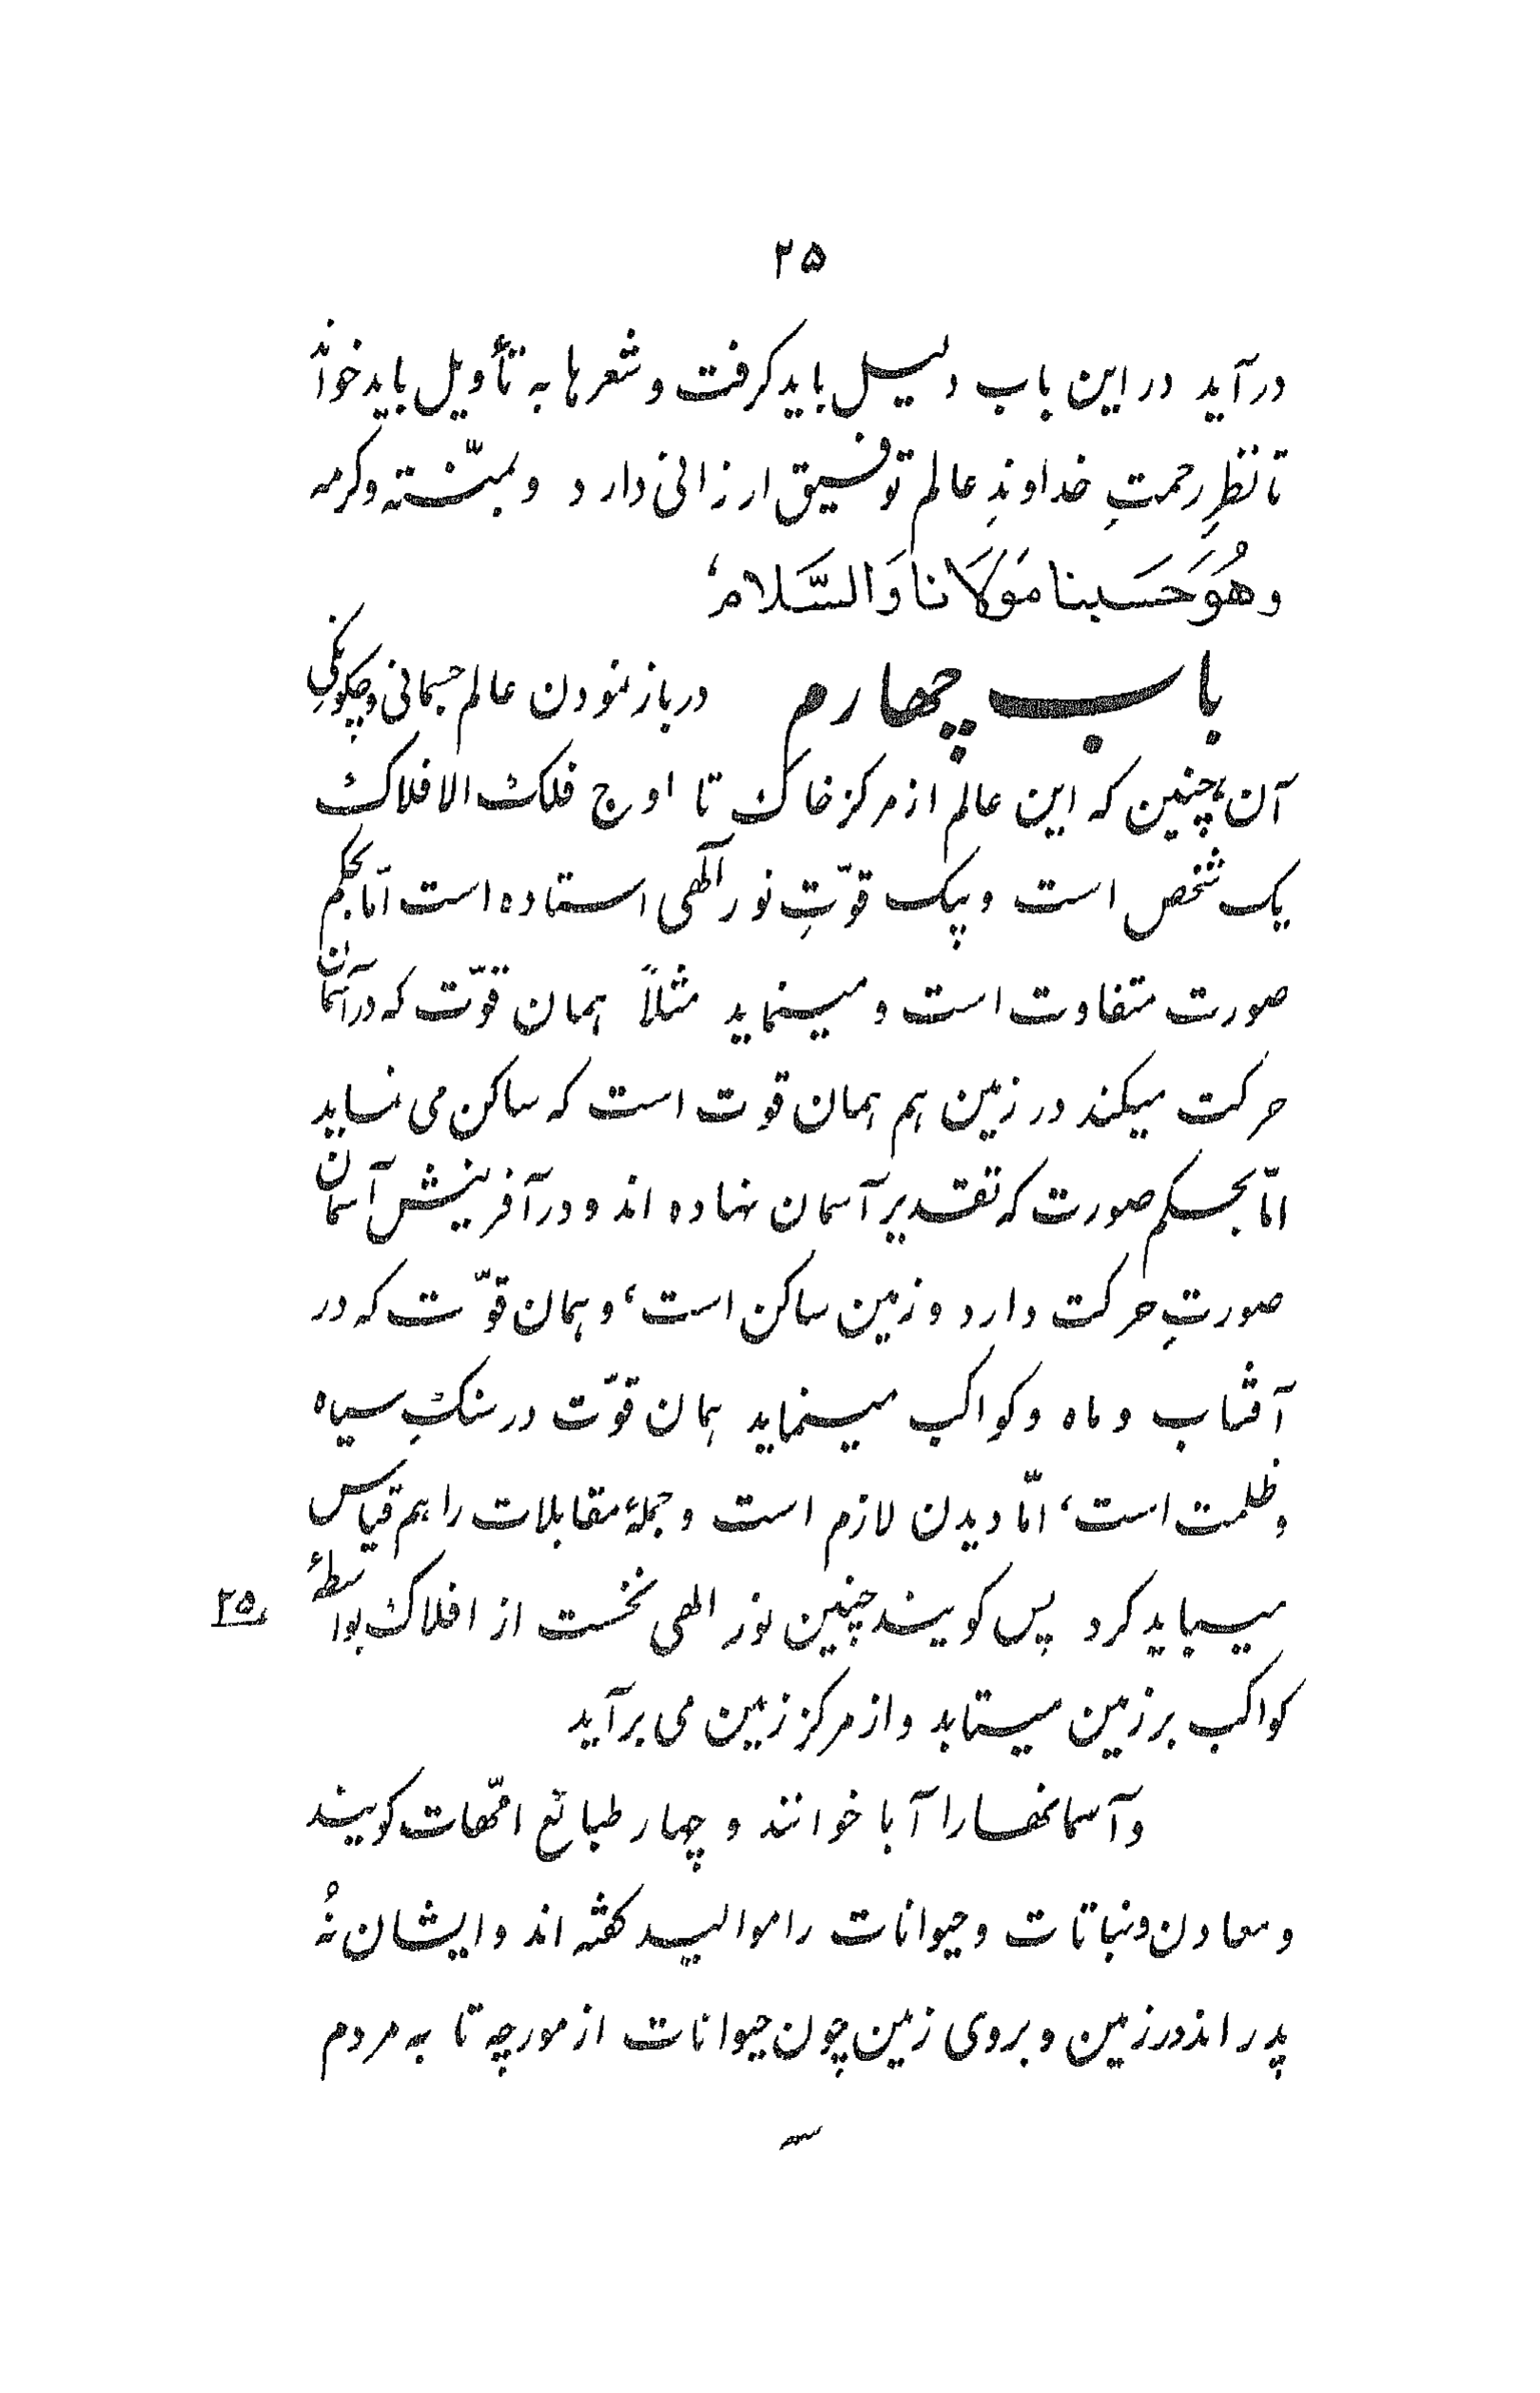 ۲۵
درآید در این باب دلیل باید کرفت و شعرها به تأویل باید خواند
تا نظرِ رحمتِ خداوندِ عالم توفیق ارزانی دارد و بمنّته وکرمه
وهُوَ حَسَبنا مَوَلَانا وَالسَّلام،
باب چهارم در باز نمودن عالم جسمانی و چکونکیِ
آن، چنین که این عالم از مرکز خاک تا اوج فلک الافلاک
یک شخص است و بیک قوّتِ نور الٓهی استاده است امّا بحکم
صورت متفاوت است و مینماید مثلاً همان قوّت که در آسمان
حرکت میکند در زمین هم همان قوت است که ساکن می نماید
امّا بحکم صورت که تقدیر آسمان نهاده اند و در آفرینش آسمان
صورتِ حرکت دارد و زمین ساکن است، و همان قوّت که در
آفتاب و ماه و کواکب مینماید همان قوّت در سنکِ سیاه
و ظلمت است، امّا دیدن لازم است و جملهٔ مقابلات را هم قیاس
میباید کرد پس کویند چنین نور الهی نخست از افلاک بواسطهٔ
۲۵ر
کواکب بر زمین میتابد و از مرکز زمین می برآید
و آسمانها را آبا خوانند و چهار طبائع امّهات کویند
و معادن و نباتات و حیوانات را موالید کفته اند و ایشان نُه
پدر اند در زمین و بروی زمین چون حیوانات از مورچه تا به مردم